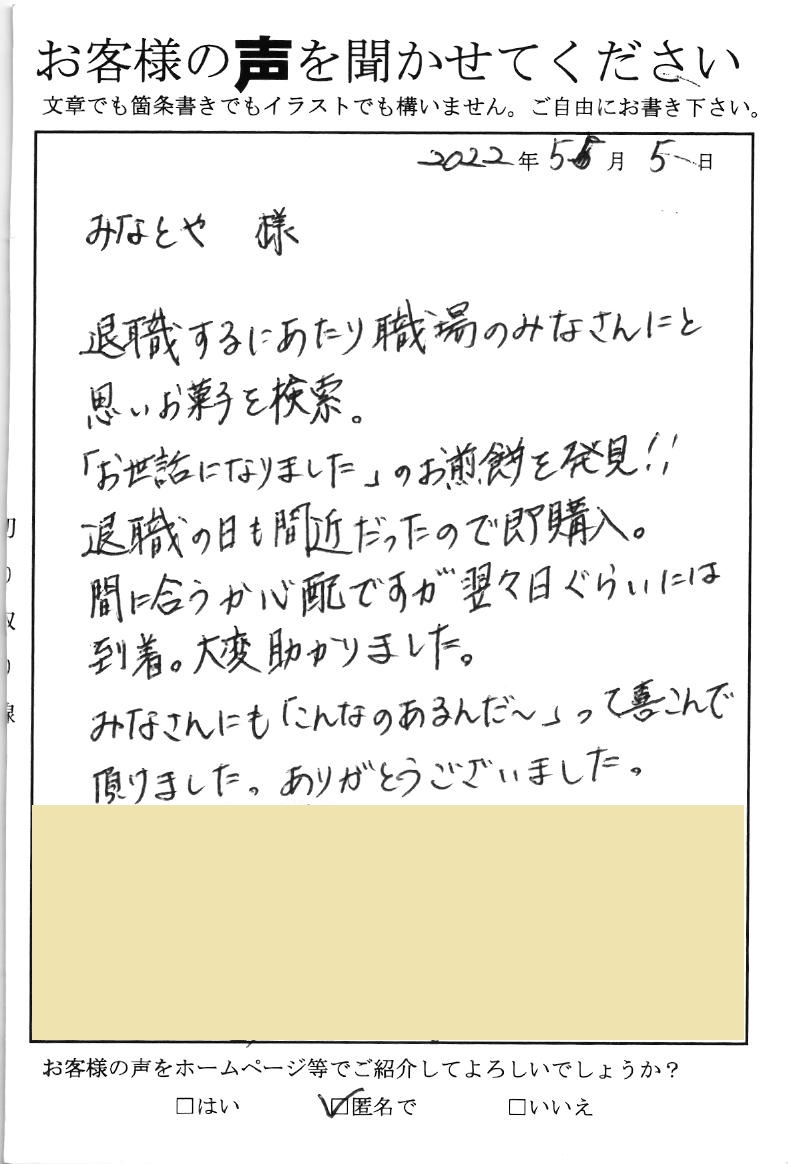 お客様の声を聞かせてください
文章でも箇条書きでもイラストでも構いません。ご自由にお書き下さい。
2022年 5月 5日
みなとや 様
退職するにあたり職場のみなさんにと
思いお菓子を検索。
「お世話になりました」のお煎餅を発見!!
退職の日も間近だったので即購入。
間に合うか心配ですが翌々日ぐらいには
到着。大変助かりました。
みなさんにも「こんなのあるんだ～」って喜こんで
頂けました。ありがとうございました。
切り取り線
お客様の声をホームページ等でご紹介してよろしいでしょうか？
□はい ☑匿名で □いいえ